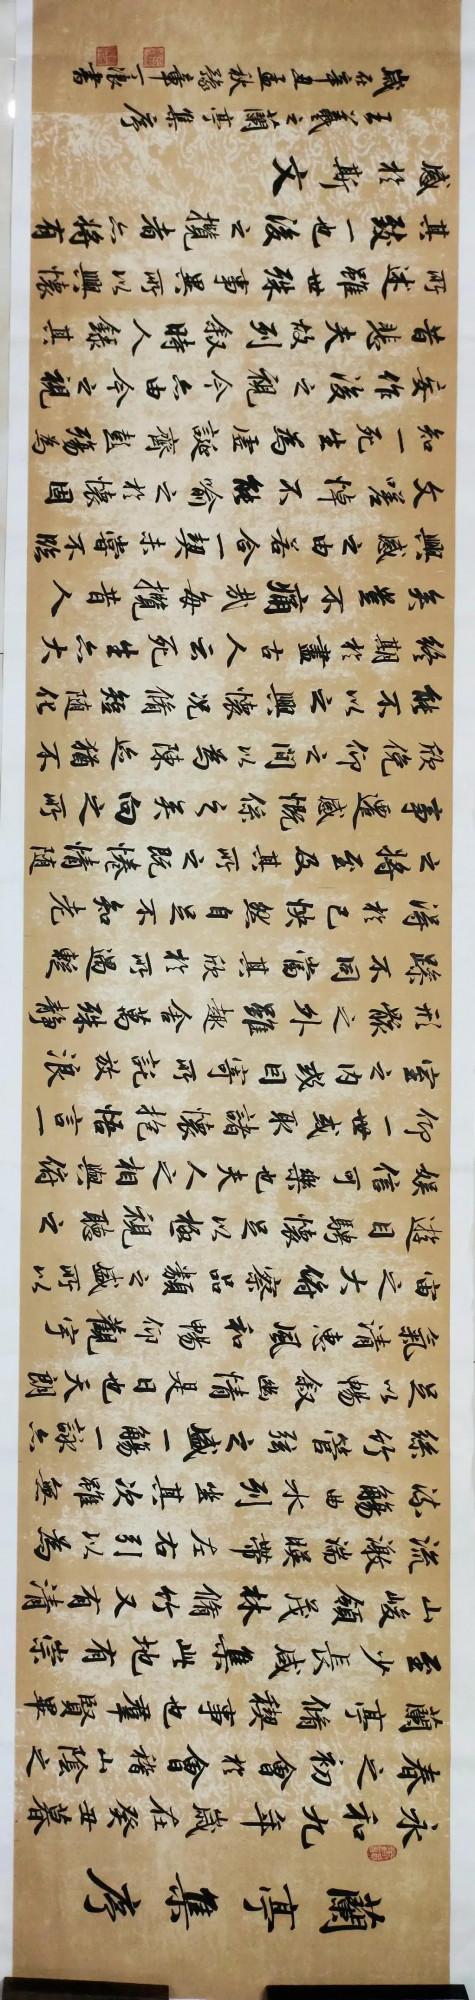 蘭亭集序
永和九年歲在癸丑暮
春之初會於會稽山陰之
蘭亭脩禊事也羣賢畢
至少長咸集此地有崇
山峻領茂林脩竹又有清
流激湍暎帶左右引以為
流觴曲水列坐其次雖無
絲竹管弦之盛一觴一詠亦
足以暢叙幽情是日也天朗
氣清惠風和暢仰觀宇
宙之大俯察品類之盛所以
遊目騁懷足以極視聽之
娛信可樂也夫人之相與俯
仰一世或取諸懷抱悟言一
室之內或因寄所託放浪
形骸之外雖趣舍萬殊靜
躁不同當其欣於所遇暫
得於己快然自足不知老
之將至及其所之既惓情隨
事遷感慨係之矣向之所
欣俛仰之間以為陳迹猶不
能不以之興懷況脩短隨化
終期於盡古人云死生亦大
矣豈不痛哉每攬昔人
興感之由若合一契未嘗不臨
文嗟悼不能喻之於懷固
知一死生為虛誕齊彭殤為
妄作後之視今亦由今之視
昔悲夫故列叙時人錄其
所述雖世殊事異所以興懷
其致一也後之攬者亦將有
感於斯文
王羲之蘭亭集序
歲在辛丑孟秋豫章丁浪書